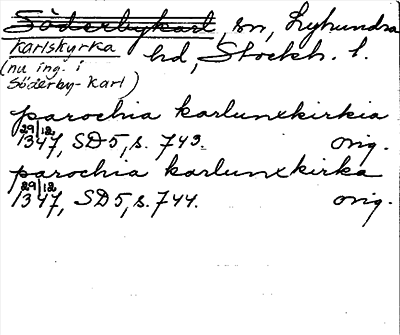 Söderbykarl, sn, Lyhundra
Karlskyrka hd, Stockh. l.
(nu ing. i
Söderby-Karl)
parochia karlunxkirkia
29/12 1347, SD 5, s. 743. orig.
parochia karlunxkirka
29/12 1347, SD 5, s. 744. orig.